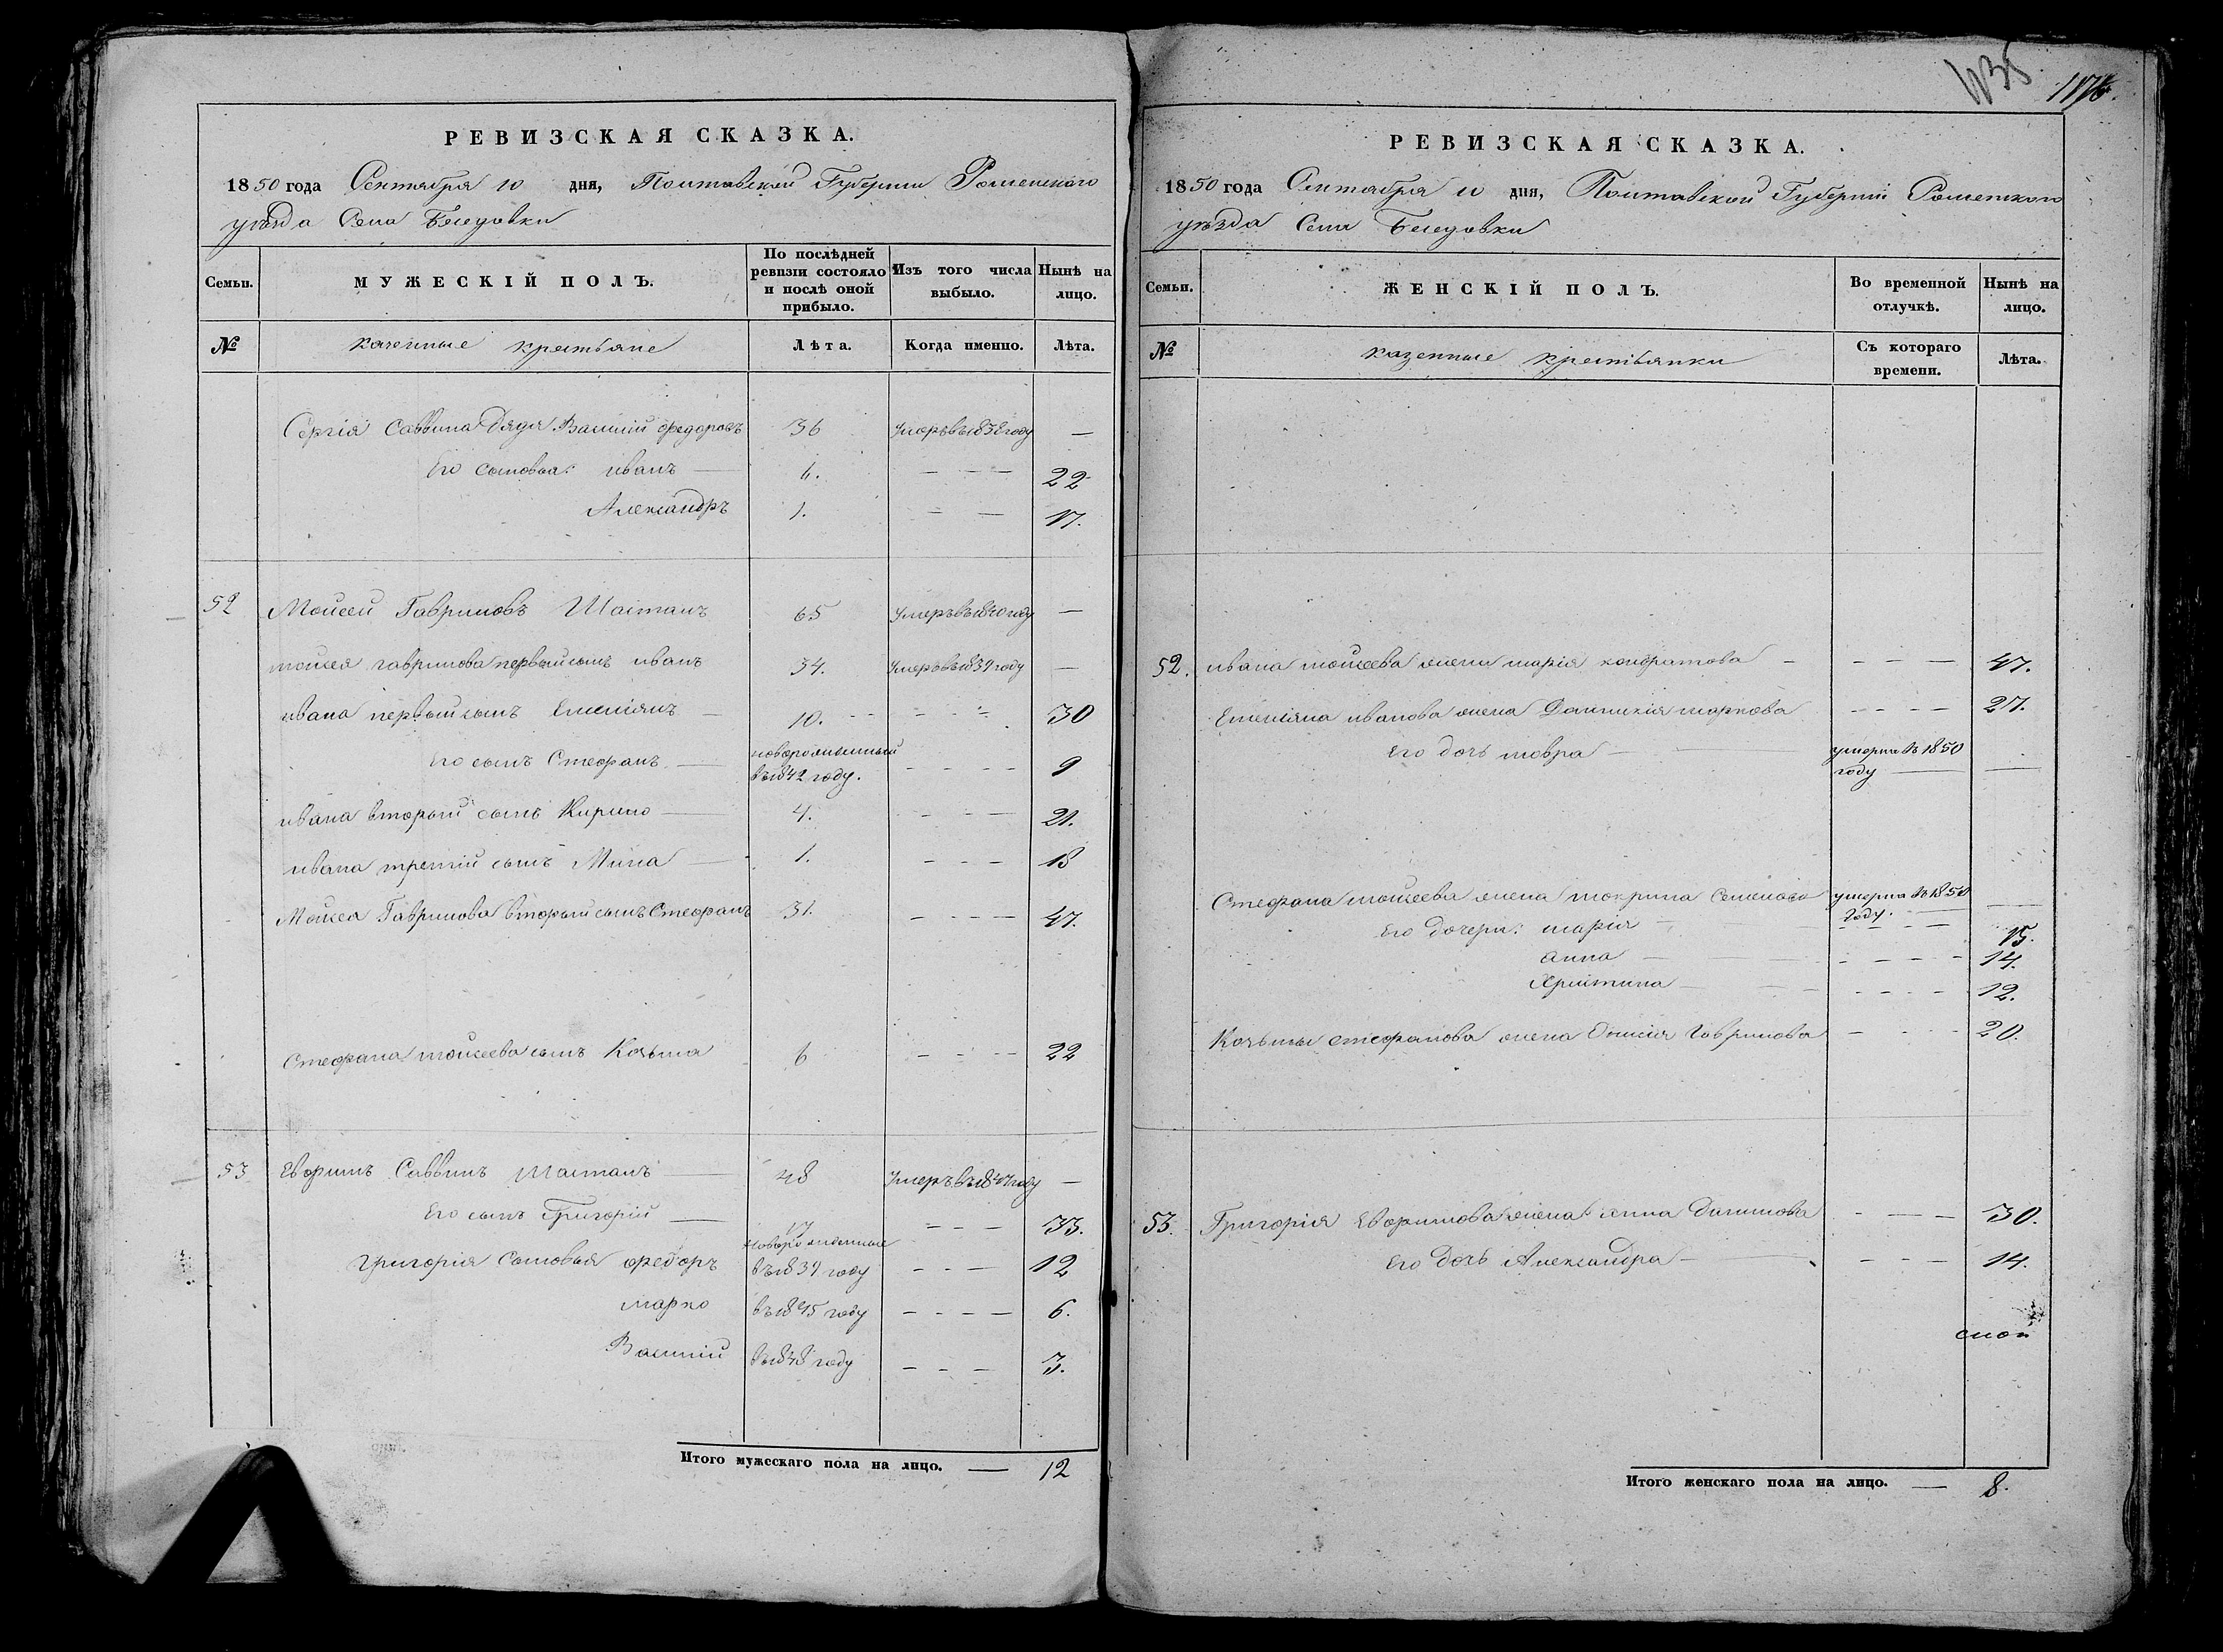 РЕВИЗСКАЯ СКАЗКА.
1850 года Сентября 10 дня, Полтавской Губернии Роменского
уезда Села Беседовки
Семьи. МУЖЕСКІЙ ПОЛЪ. По послѣдней ревизіи состояло и послѣ оной прибыло. Изъ того числа выбыло. Нынѣ на лицо.
№ казенные крестьяне Лѣта. Когда именно. Лѣта.
Сергія Саввина Дядя Василій Федоровъ 36 Умеръ въ 1838 году —
Его сыновья: иванъ — 6. — — — 22
Александръ 1. — — 17.
52 Мойсей Гавриловъ Шостакъ 65 Умеръ въ 1840 году —
мойсея гаврилова первый сынъ иванъ 34. Умеръ въ 1839 году —
ивана первый сынъ Емеліянъ — 10. — — — 30
его сынъ Стефанъ — новорожденный въ 1842 году. — — — — 9
ивана вторый сынъ Кирило — 4. — — — — 21.
ивана третій сынъ Мина — 1. — — — 18
Мойсея Гаврилова вторый сынъ Стефанъ 31. — — — — 47.
Стефана мойсеева сынъ Козьма 6 — — — — 22
53 Евфимъ Саввинъ — 48 Умеръ въ 1847 году —
Его сынъ Григорій — 17 — — — 33.
Григорія Сыновья Федоръ новорожденные въ 1839 году — — — 12
марко въ 1845 году — — — — 6.
Василій въ 1848 году — — — 3.
Итого мужескаго пола на лицо. — 12
1135
РЕВИЗСКАЯ СКАЗКА.
1850 года Сентября 10 дня, Полтавской Губерніи Роменского
уезда Села Беседовки
Семьи. ЖЕНСКІЙ ПОЛЪ. Во временной отлучкѣ. Нынѣ на лицо.
№ казенные крестьянки Съ котораго времени. Лѣта.
52. ивана мойсеева жена марія кондратова — — — — 47.
Емеліяна иванова жена Домникія маркова — — — — 27.
его дочь мовра — умерла въ 1850 году — —
Стефана мойсеева жена мокрина Семенова умерла въ 1850 году. — —
Его дочери: марія — — — — 15.
анна — — — — — 14.
Христина — — — — — 12.
Козьмы стефанова жена Онисія Гаврилова — — — 20.
53. Григорія Евфимова жена анна Данилова — — — 30.
Его дочь Александра — — — — 14.
Итого женскаго пола на лицо. — 8.